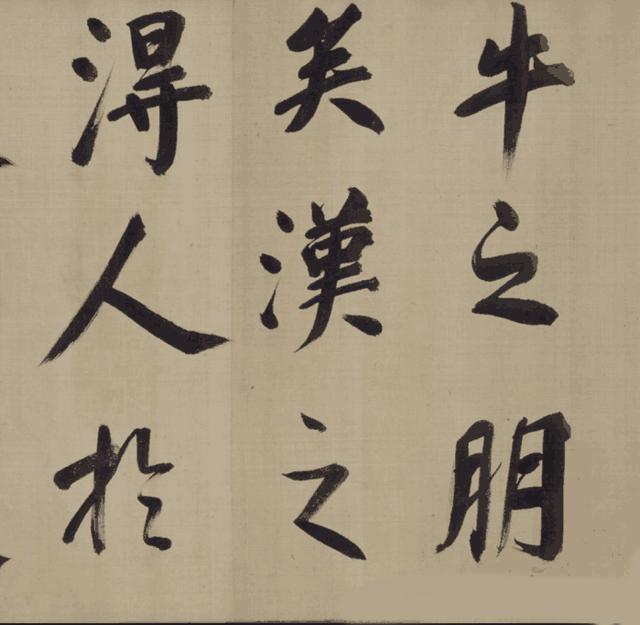 牛之朋
矣漢之
得人於